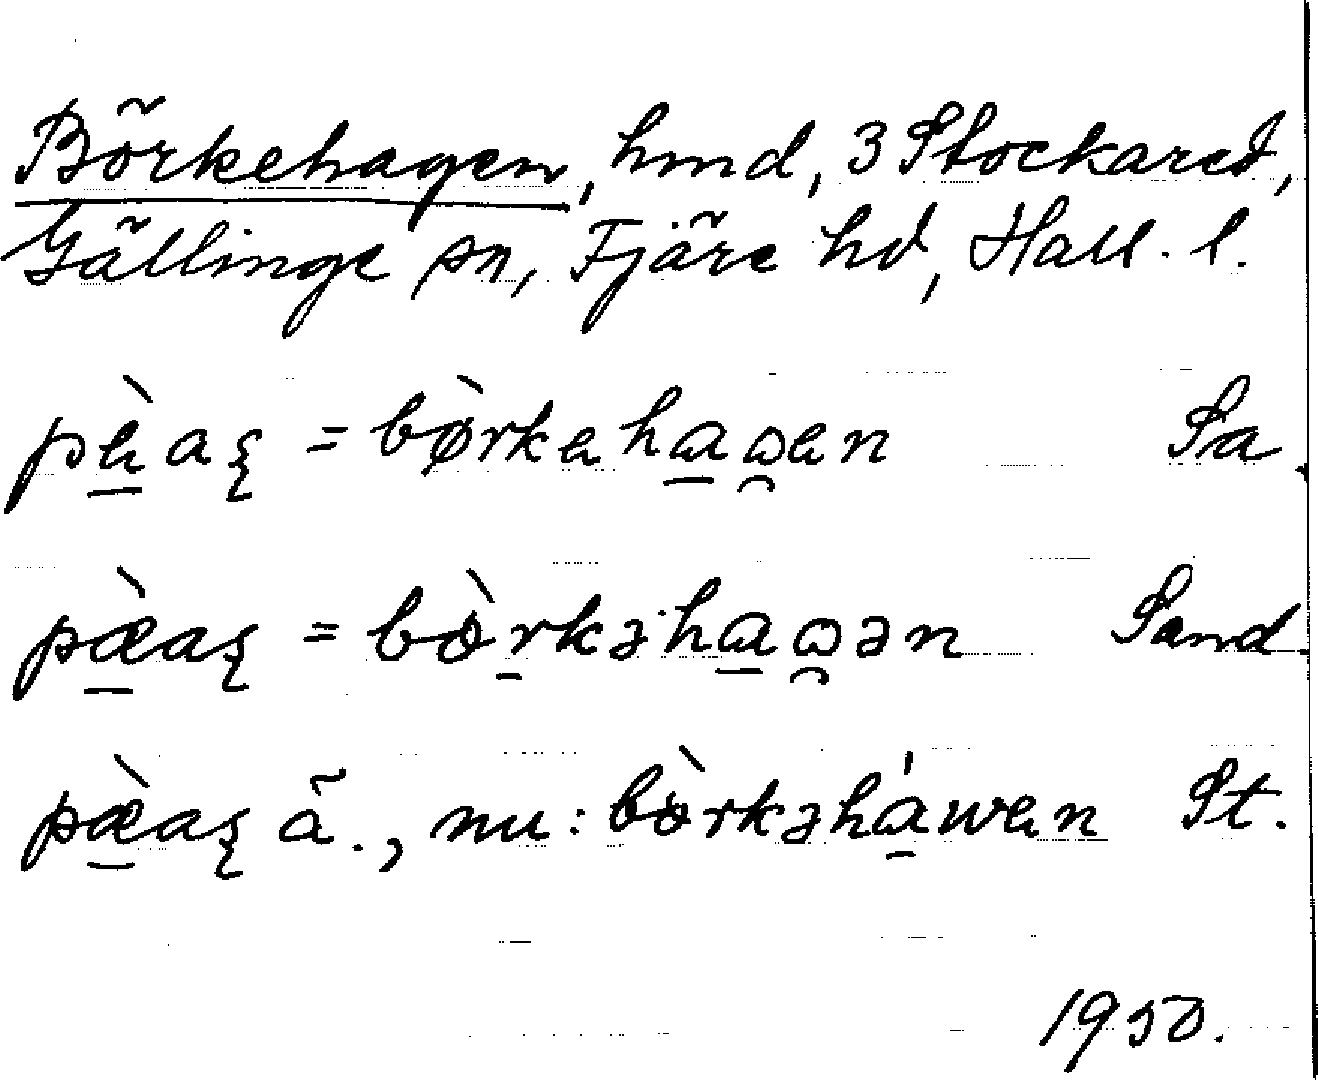 Börkehagen, hmd, 3 Stockared,
Gällinge sn, Fjäre hd, Hall. l.
pèaş = bø̀rkehaωen Sa.
pæ̀aş = bòrkəhaωən Sand.
pæ̀aş ä., nu: bòrkəháwen St.
1950.